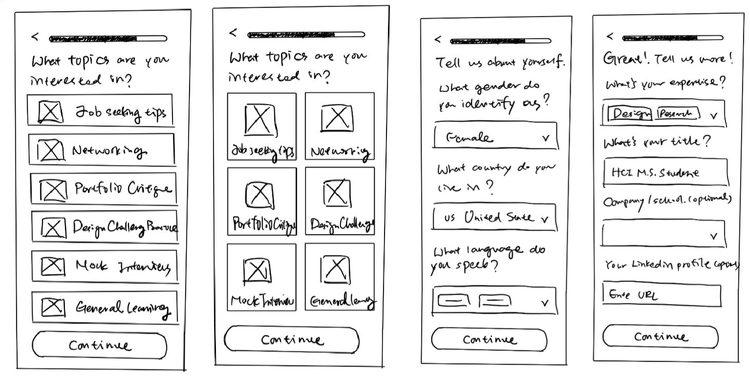 <
What topics are you
interested in?
Job seeking tips
Networking
Portfolio Critique
Design Challenge
Mock Interviews
General Learning
Continue
<
What topics are you
interested in?
Job seeking tips
Networking
Portfolio Critique
Design Challenge
Mock Interview
General
Continue
<
Tell us about yourself.
What gender do
you identify as?
Female
What country do you
live in?
US United State
What language do
you speek?
Continue
<
Great! Tell us more!
What's your expertise?
Design Research
What's your title?
HCI M.S. Student
Company/school (optional)
Your Linkedin profile
URL
Continue